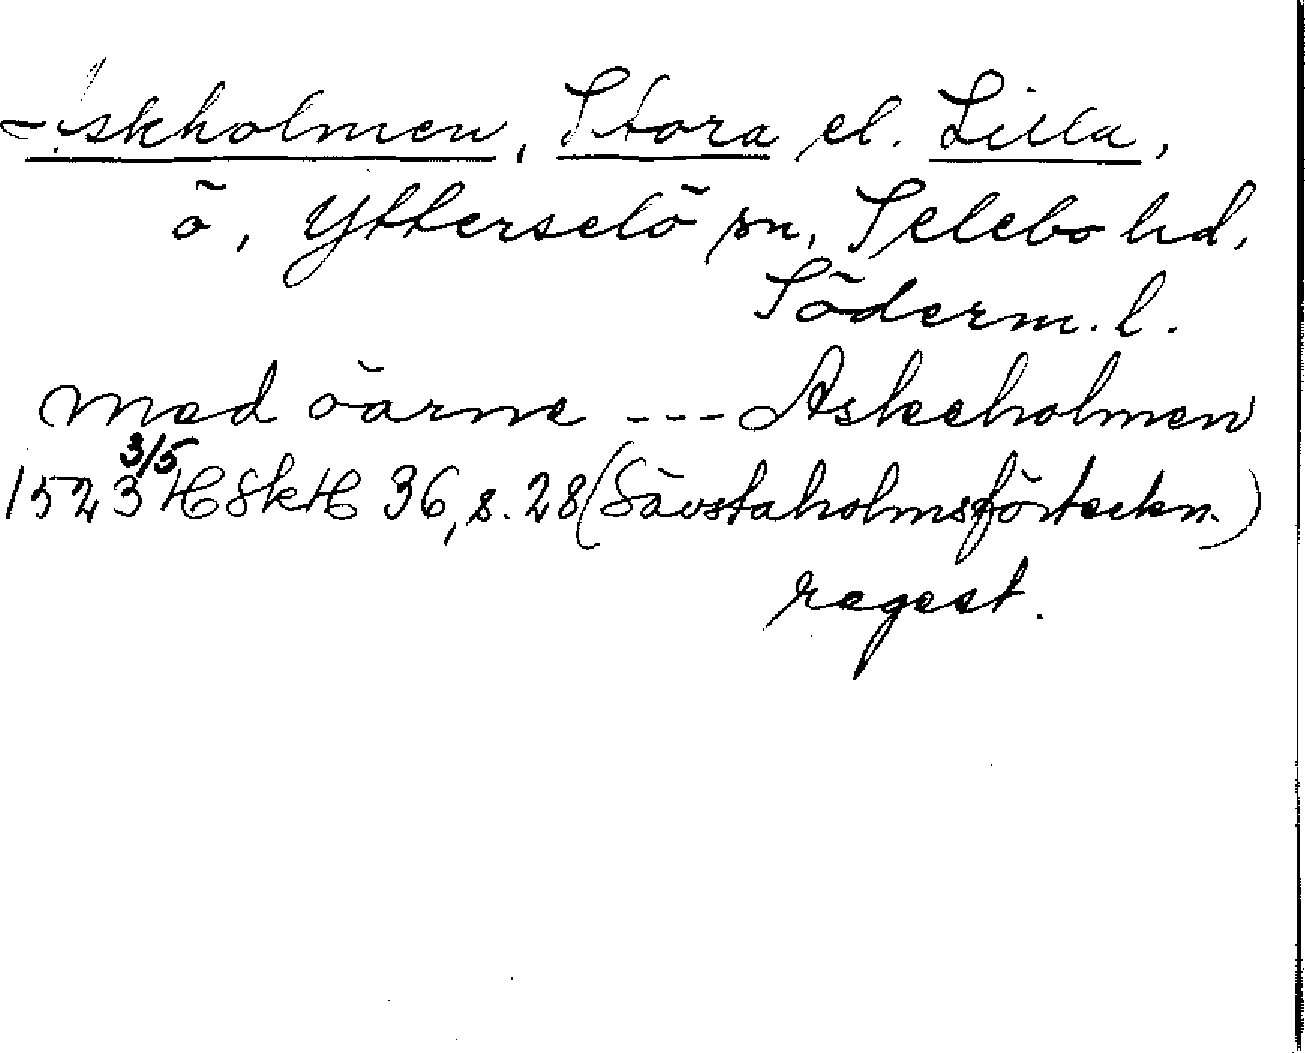 Askholmen, Stora el. Lilla,
ö, Ytterselö sn, Selebo hd,
Söderm. l.
med öarne --- Askeholmen
1523 3/5 HSkH 36, s. 28 (Sävstaholmsförteckn.)
regest.